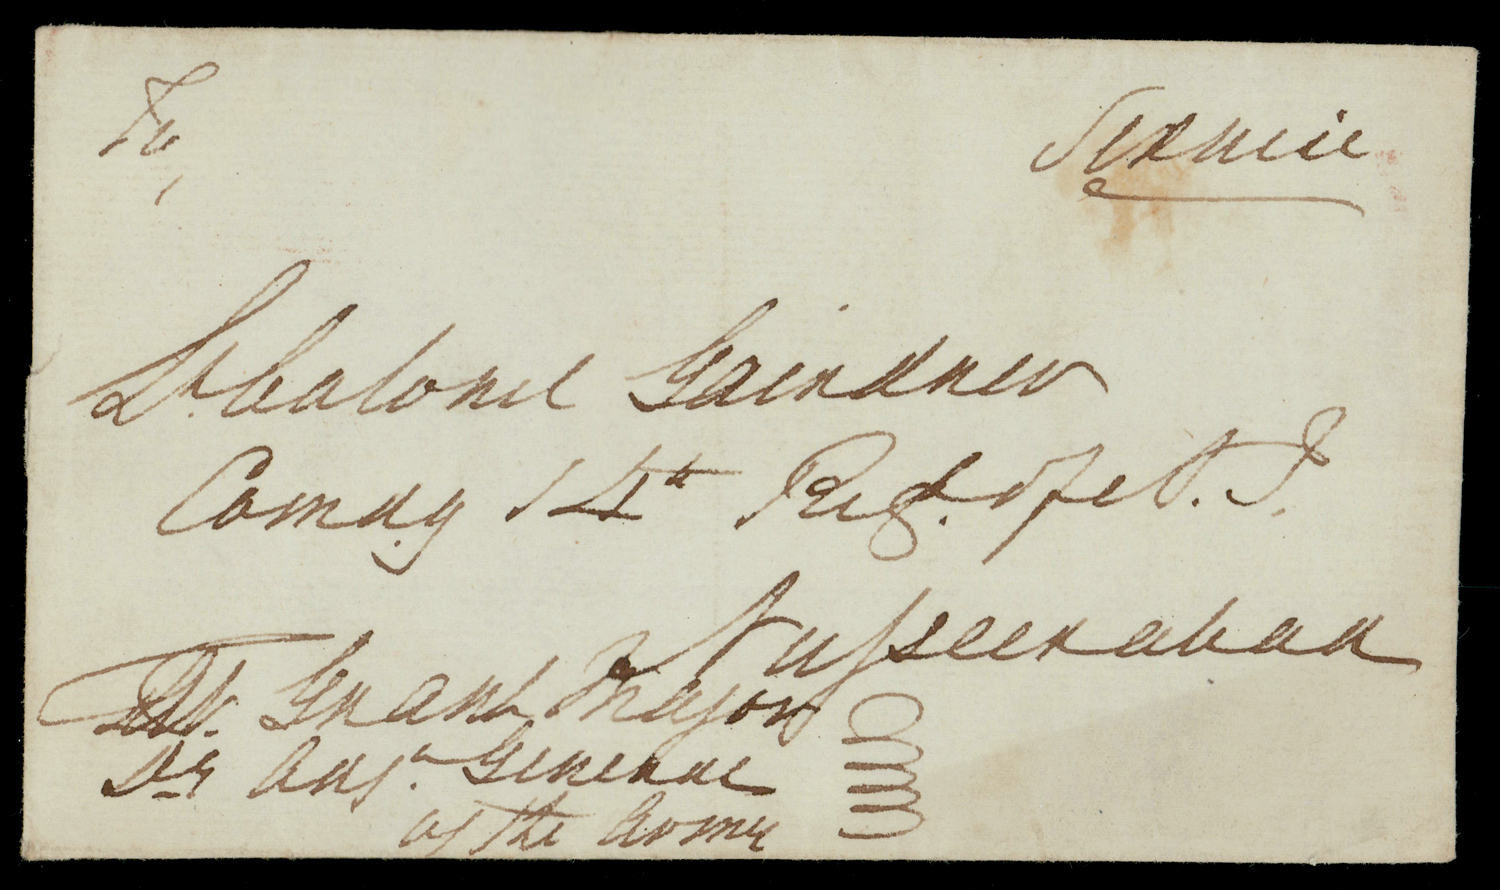 To,
Service
Lt. Colonel Gairdner
Comdg 14th Regt. of N. I.
Nusseerabad
Grant Major
Dy Adjt. General
of the Army